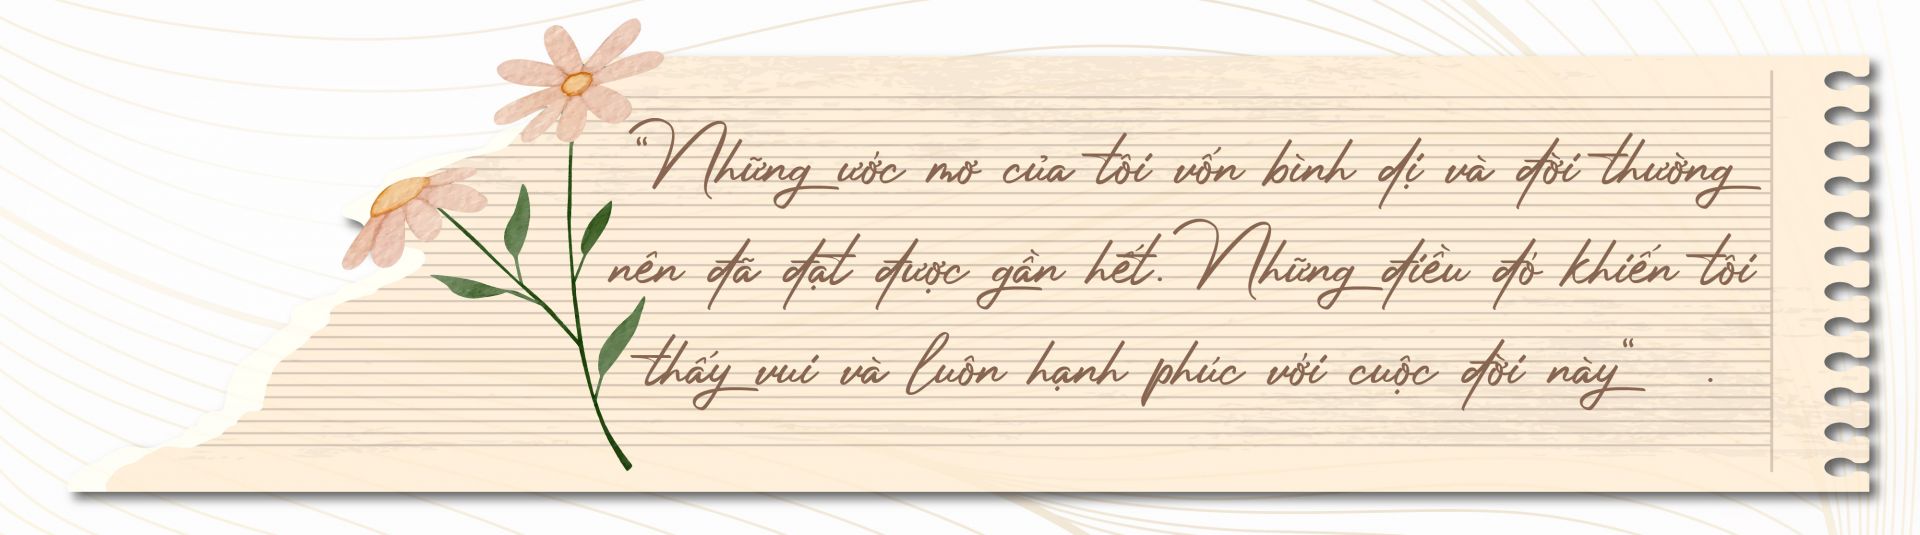 “Những ước mơ của tôi vốn bình dị và đời thường
nên đã đạt được gần hết. Những điều đó khiến tôi
thấy vui và luôn hạnh phúc với cuộc đời này“ .